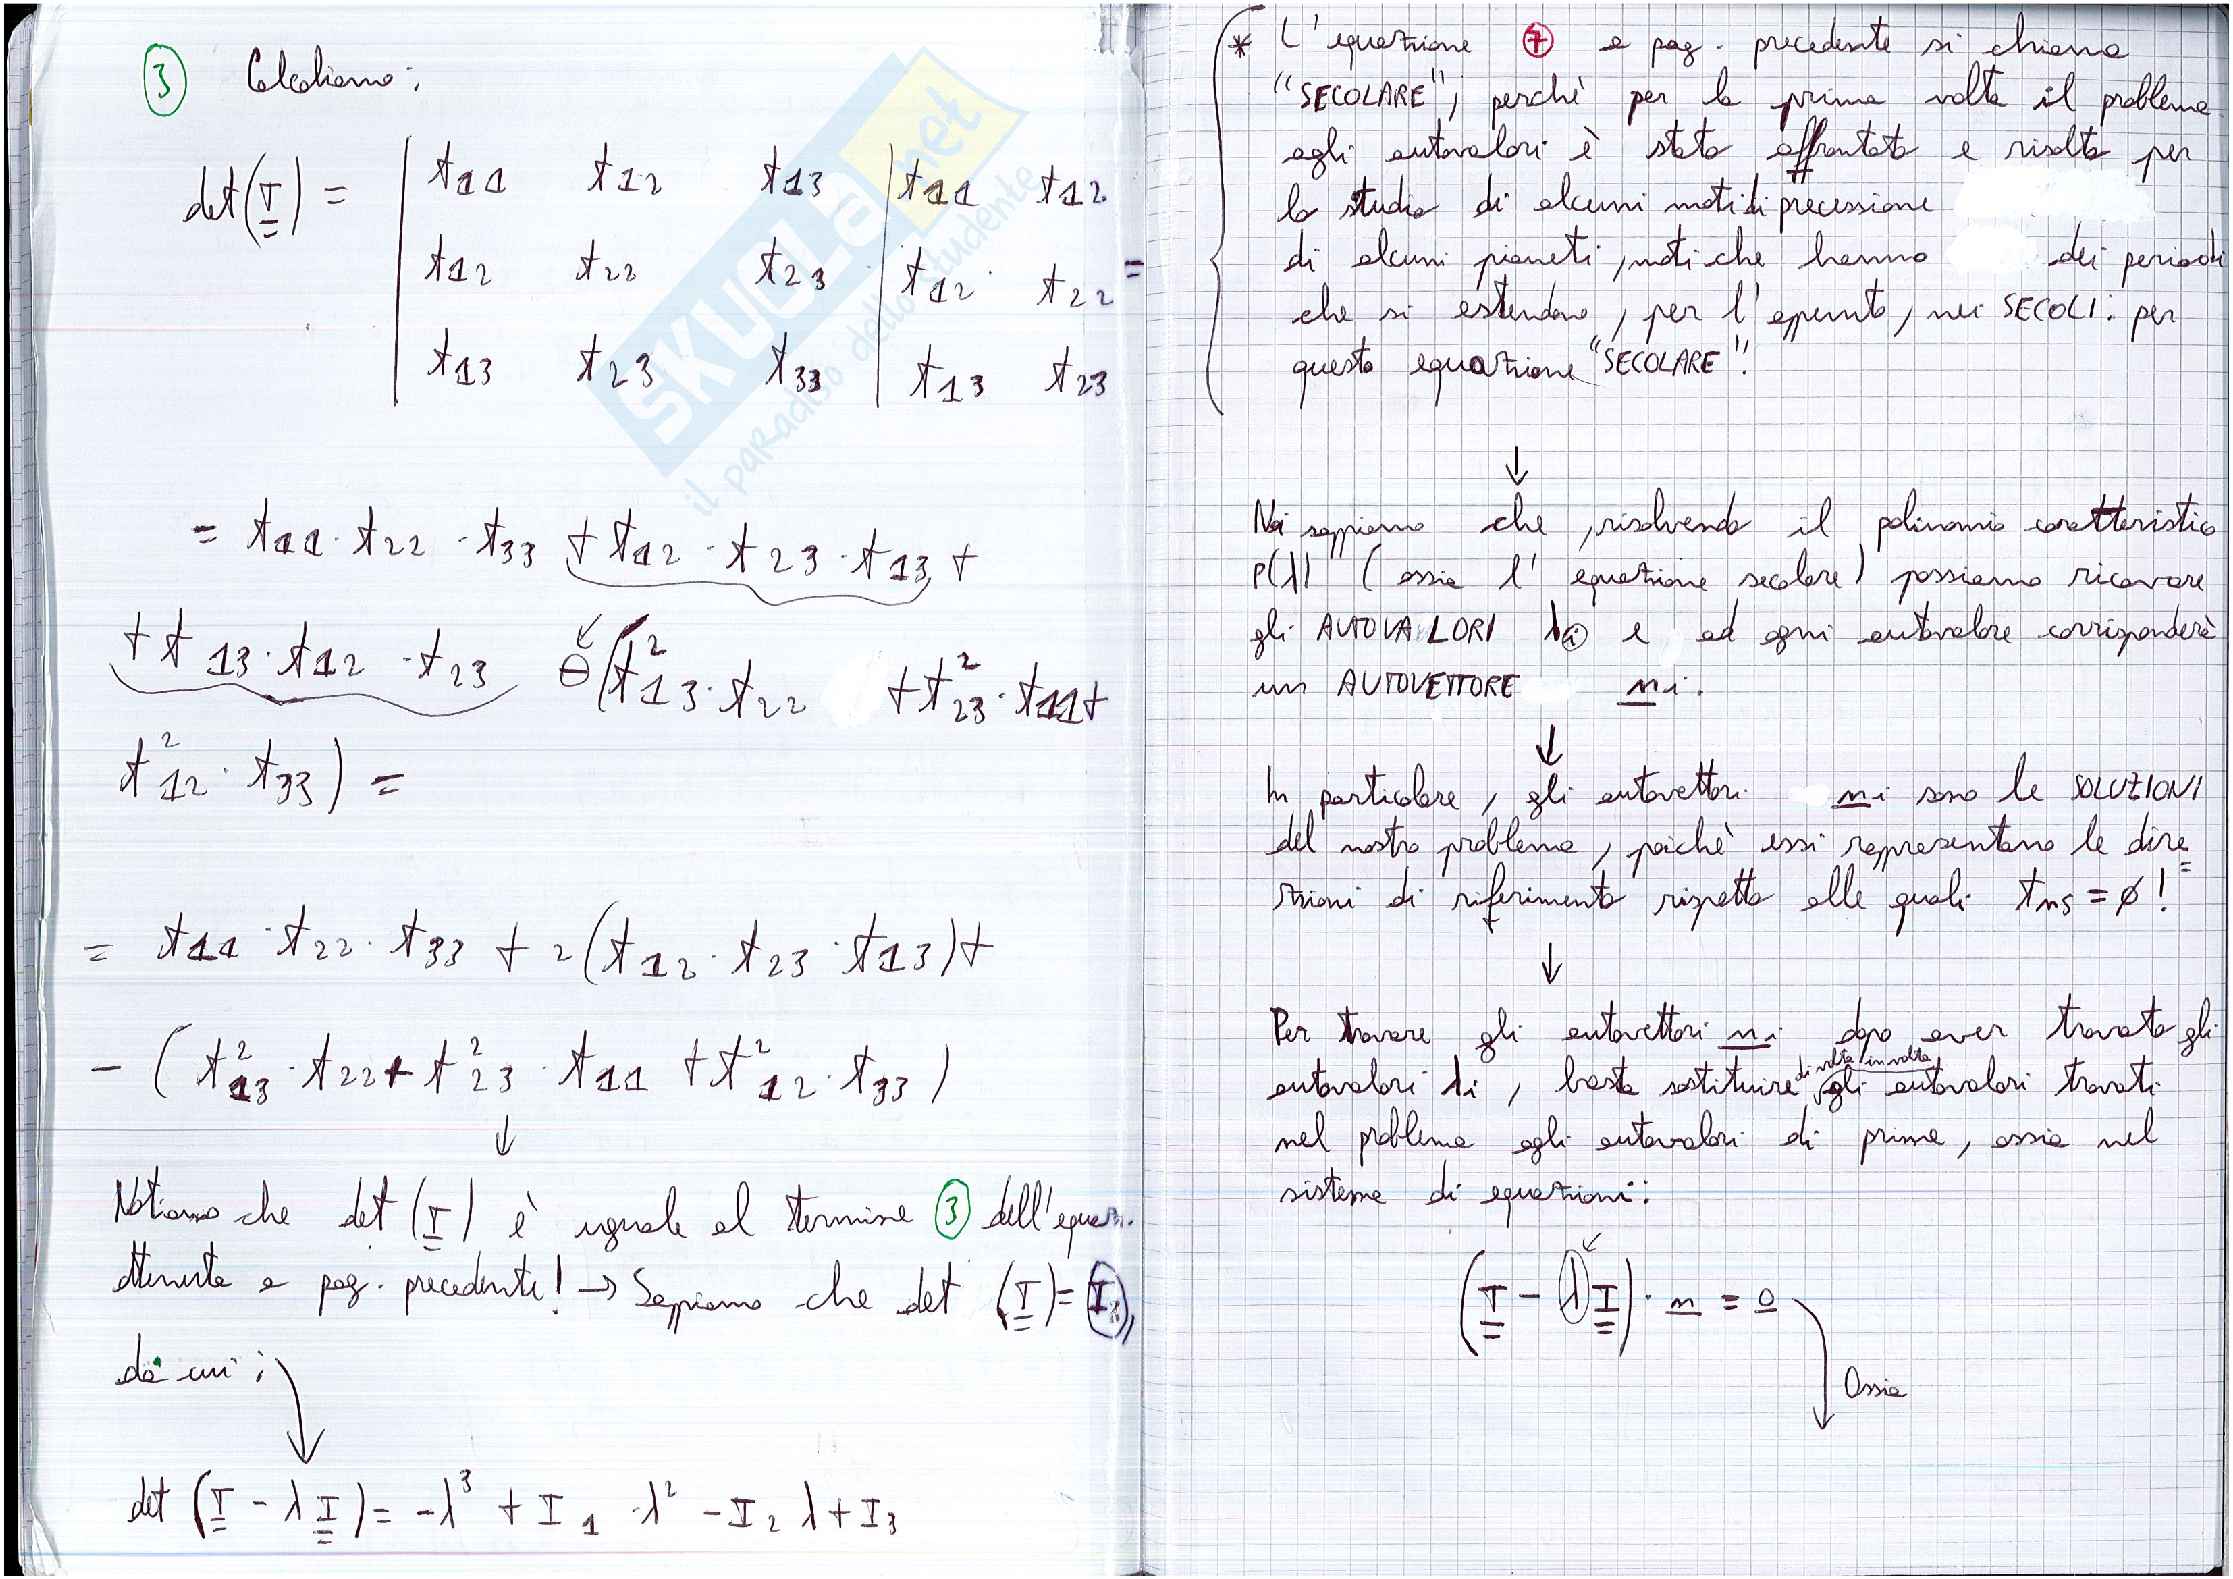 ③ Calcoliamo:
det(T) = | t11 t12 t13 | t11 t12
t12 t22 t23 | t12 t22 =
t13 t23 t33 | t13 t23
= t11 · t22 · t33 + t12 · t23 · t13 +
+ t13 · t12 · t23 ⊖ (t²13 · t22 + t²23 · t11 +
t²12 · t33) =
= t11 · t22 · t33 + 2 (t12 · t23 · t13) +
- (t²13 · t22 + t²23 · t11 + t²12 · t33)
↓
Notiamo che det (T) è uguale al termine ③ dell'equaz.
ottenuta a pag. precedente! → Sappiamo che det (T) = I3,
da cui:
det (T - λ I) = -λ³ + I1 · λ² - I2 λ + I3
SKUOLA.net
il paradiso dello studente
* L'equazione ⑦ a pag. precedente si chiama
"SECOLARE", perchè per la prima volta il problema
agli autovalori è stato affrontato e risolto per
lo studio di alcuni moti di precessione
di alcuni pianeti, moti che hanno dei periodi
che si estendono, per l'appunto, nei SECOLI: per
questo equazione "SECOLARE"!
↓
Noi sappiamo che, risolvendo il polinomio caratteristico
P(λ) (ossia l'equazione secolare) possiamo ricavare
gli AUTOVALORI λi e ad ogni autovalore corrisponderà
un AUTOVETTORE ni.
↓
In particolare, gli autovettori ni sono le SOLUZIONI
del nostro problema, poichè essi rappresentano le dire=
zioni di riferimento rispetto alle quali tns = ∅!
↓
Per trovare gli autovettori ni dopo aver trovato gli
autovalori λi, basta sostituire di volta in volta gli autovalori trovati
nel problema agli autovalori di prima, ossia nel
sistema di equazioni:
(T - λ I) · n = 0
Ossia